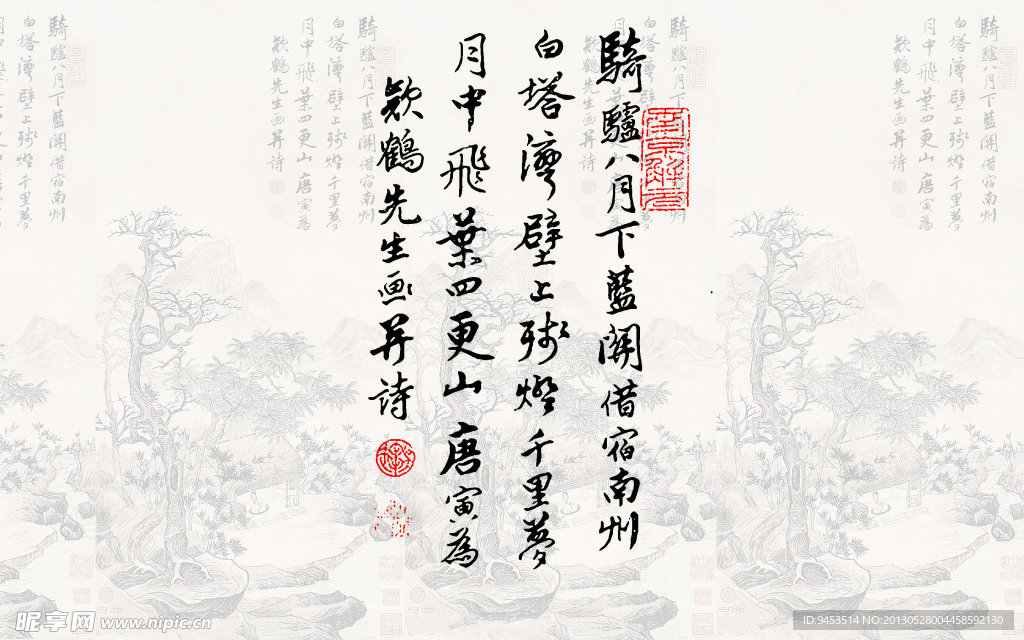 騎驢八月下藍關借宿南州
白塔灣壁上殘燈千里夢
月中飛葉四更山唐寅為
欵鶴先生画并詩
昵享网 www.nipic.cn
ID:9453514 NO:20130528004458592130